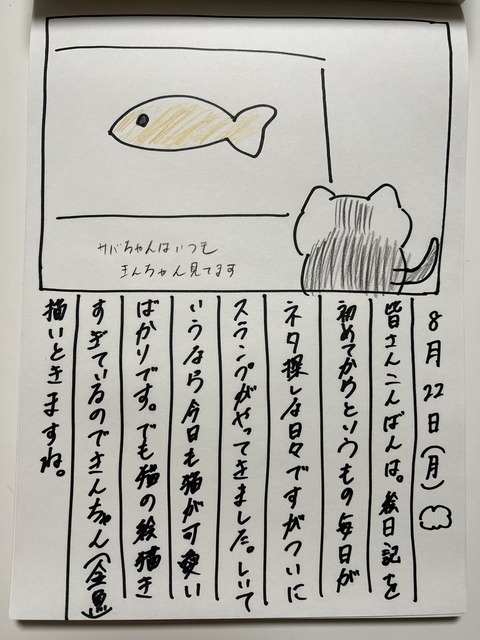 サバちゃんはいつも
きんちゃん見てます
8月22日(月)
皆さんこんばんは。絵日記を
初めてからというもの毎日が
ネタ探しな日々ですがついに
スランプがやってきました。しいて
いうなら今日も猫が可愛い
ばかりです。でも猫の絵描き
すぎているのできんちゃん(金魚)
描いときますね。